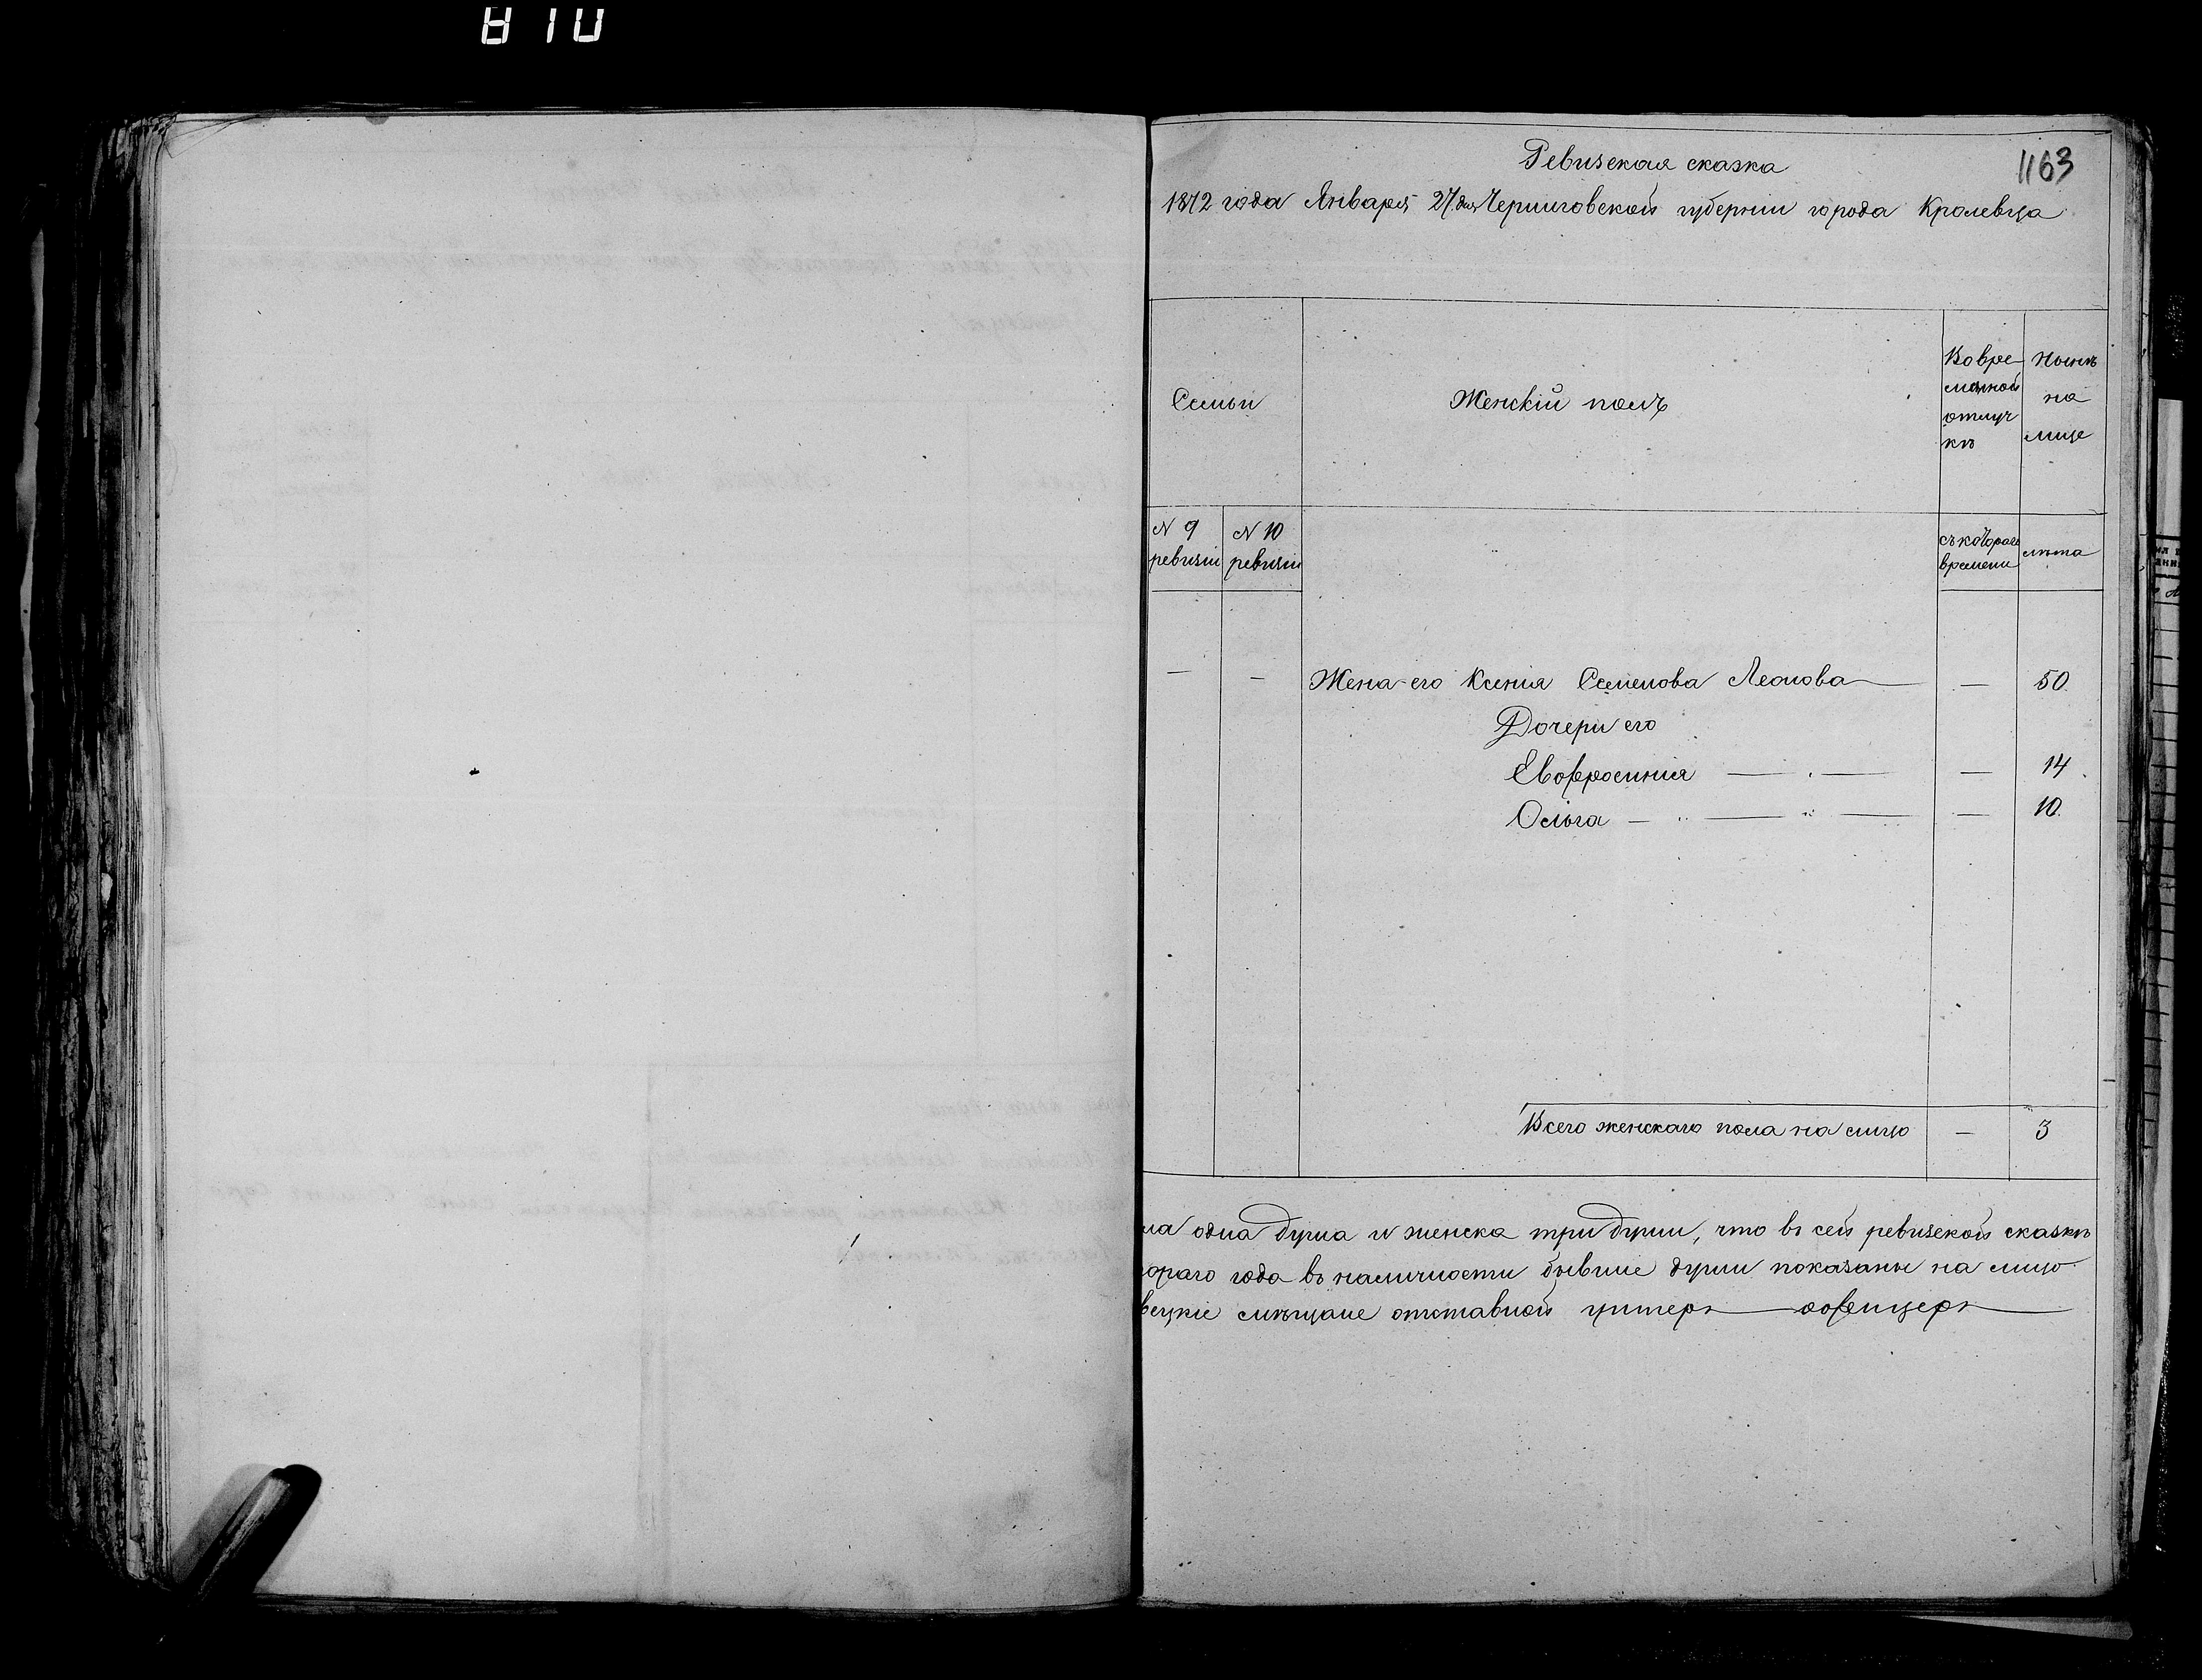 810
1163
Ревизская сказка
1872 года Января 27 дня Черниговской губернии города Кролевца
Семьи
Женскій полъ
Во вре
мянной
отлуч
кѣ
Нынѣ
на
лице
N 9
ревизіи
N 10
ревизіи
съ котораго
времени
лѣта
— — Жена его Ксенія Семенова Леонова — — 50
Дочери его
Евофросинія — — — 14
Ольга — " — " — — 10
Всего женскаго пола на лицо — 3
ла одна душа и женска три души, что въ сей ревизской сказкѣ
ораго года въ наличности бывшіе души показаны на лицо
вецкіе мѣщане отставной унтеръ — офицеръ —